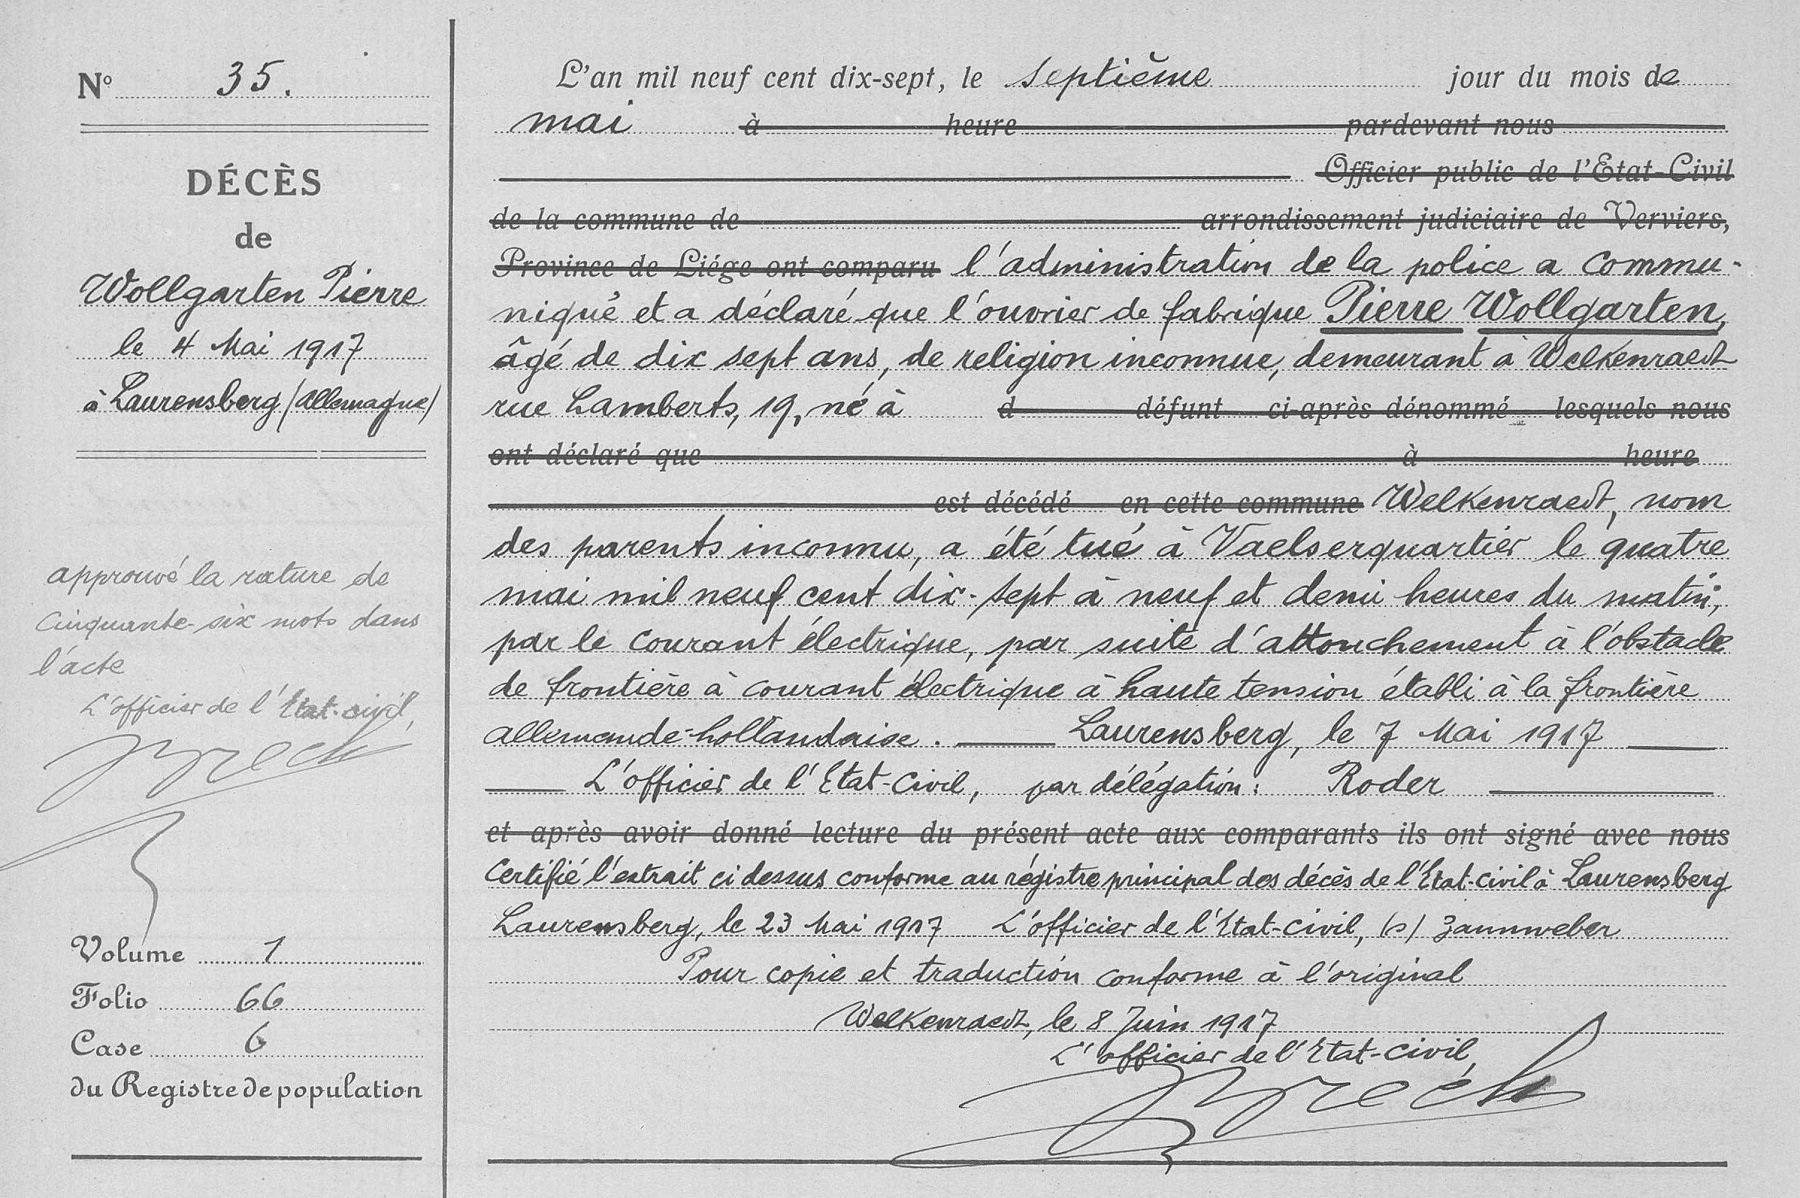 N° 35.
DÉCÈS
de
Wollgarten Pierre
le 4 Mai 1917
à Laurensberg (Allemagne)
approuvé la rature de
cinquante-six mots dans
l'acte
L'officier de l'Etat-civil,
Volume 1
Folio 66
Case 6
du Registre de population
L'an mil neuf cent dix-sept, le septième jour du mois de
mai à heure pardevant nous
Officier public de l'Etat-Civil
de la commune de arrondissement judiciaire de Verviers,
Province de Liége ont comparu l'administration de la police a commu-
niqué et a déclaré que l'ouvrier de fabrique Pierre Wollgarten,
âgé de dix sept ans, de religion inconnue, demeurant à Welkenraedt
rue Lamberts, 19, né à d défunt ci-après dénommé lesquels nous
ont déclaré que à heure
est décédé en cette commune Welkenraedt, nom
des parents inconnu, a été tué à Vaelserquartier le quatre
mai mil neuf cent dix-sept à neuf et demi heures du matin,
par le courant électrique, par suite d'attouchement à l'obstacle
de frontière à courant électrique à haute tension établi à la frontière
allemande-hollandaise. Laurensberg, le 7 Mai 1917
L'officier de l'Etat-Civil, par délégation: Roder
et après avoir donné lecture du présent acte aux comparants ils ont signé avec nous
Certifié l'extrait ci dessus conforme au régistre principal des décès de l'Etat-civil à Laurensberg
Laurensberg, le 23 Mai 1917 L'officier de l'Etat-civil, (s) Zannweber
Pour copie et traduction conforme à l'original
Welkenraedt, le 8 Juin 1917
L'officier de l'Etat-civil,